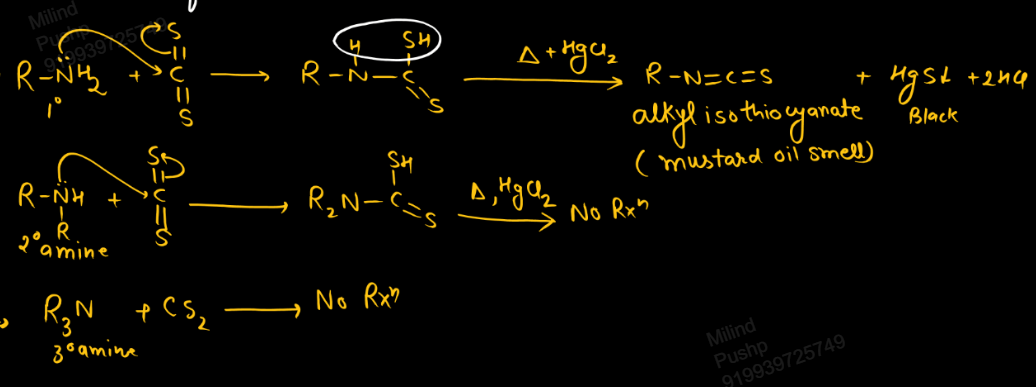 Milind
Pushp
919939725749
R-N̈H₂ + S=C=S ⟶ R-N(H)-C(SH)=S —Δ+HgCl₂⟶ R-N=C=S + HgS↓ + 2HCl
1°
alkyl isothiocyanate
Black
(mustard oil smell)
R-N̈H + S=C=S ⟶ R₂N-C(SH)=S —Δ, HgCl₂⟶ No Rxⁿ
R
2° amine
R₃N + CS₂ ⟶ No Rxⁿ
3° amine
Milind
Pushp
919939725749